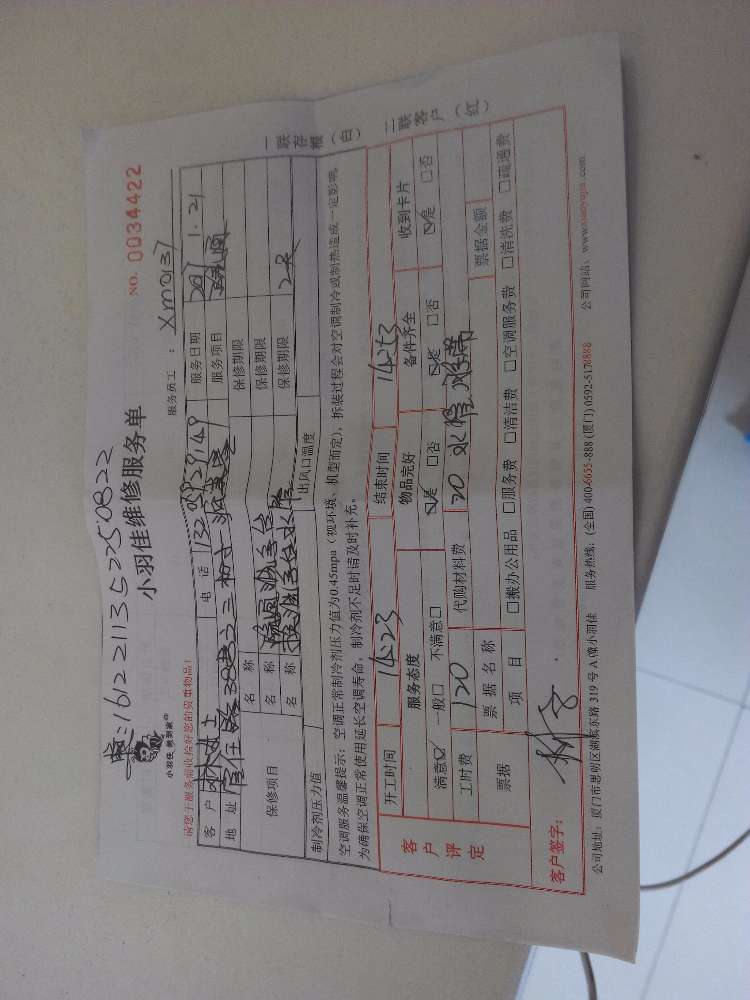 1612211352250822
小羽佳维修服务单
NO. 0034422
小羽佳，做到家中
服务员工： XM0137
请您于服务前收拾好您的贵重物品！
客户 电话 服务日期 1.21
地址 服务项目
保修项目 名称 保修期限
名称 保修期限
名称 保修期限
制冷剂压力值 出风口温度
空调服务温馨提示：空调正常制冷剂压力值为0.45mpa（视环境、机型而定），拆装过程会对空调制冷或制热造成一定影响，
为确保空调正常使用延长空调寿命，制冷剂不足时请及时补充。
一联存根（白） 二联客户（红）
开工时间 14:23 结束时间 14:53
客户评定 服务态度 物品完好 备件齐全 收到卡片
满意☑ 一般□ 不满意□ ☑是 □否 ☑是 □否 ☑是 □否
工时费 120 代购材料费 20
票据 票据名称 票据金额
项目 □搬办公用品 □服务费 □清洁费 □空调服务费 □清洗费 □疏通费
客户签字：
公司地址：厦门市思明区湖滨东路 319 号 A 幢小羽佳 服务热线：(全国) 400-6655-888 (厦门) 0592-5178888 公司网站：www.xiaoyujia.com